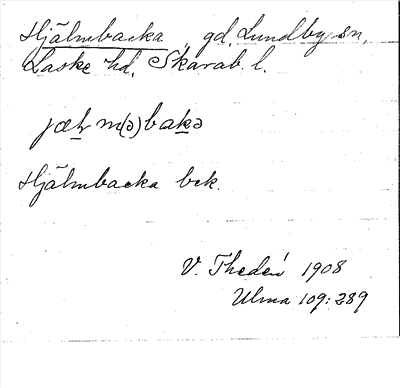 Hjälmbacka, gd, Lundby sn,
Laske hd. Skarab. l.
jæɫm(ə)bakə
Hjälmbacka bek.
V. Thedén 1908
Ulma 109:289